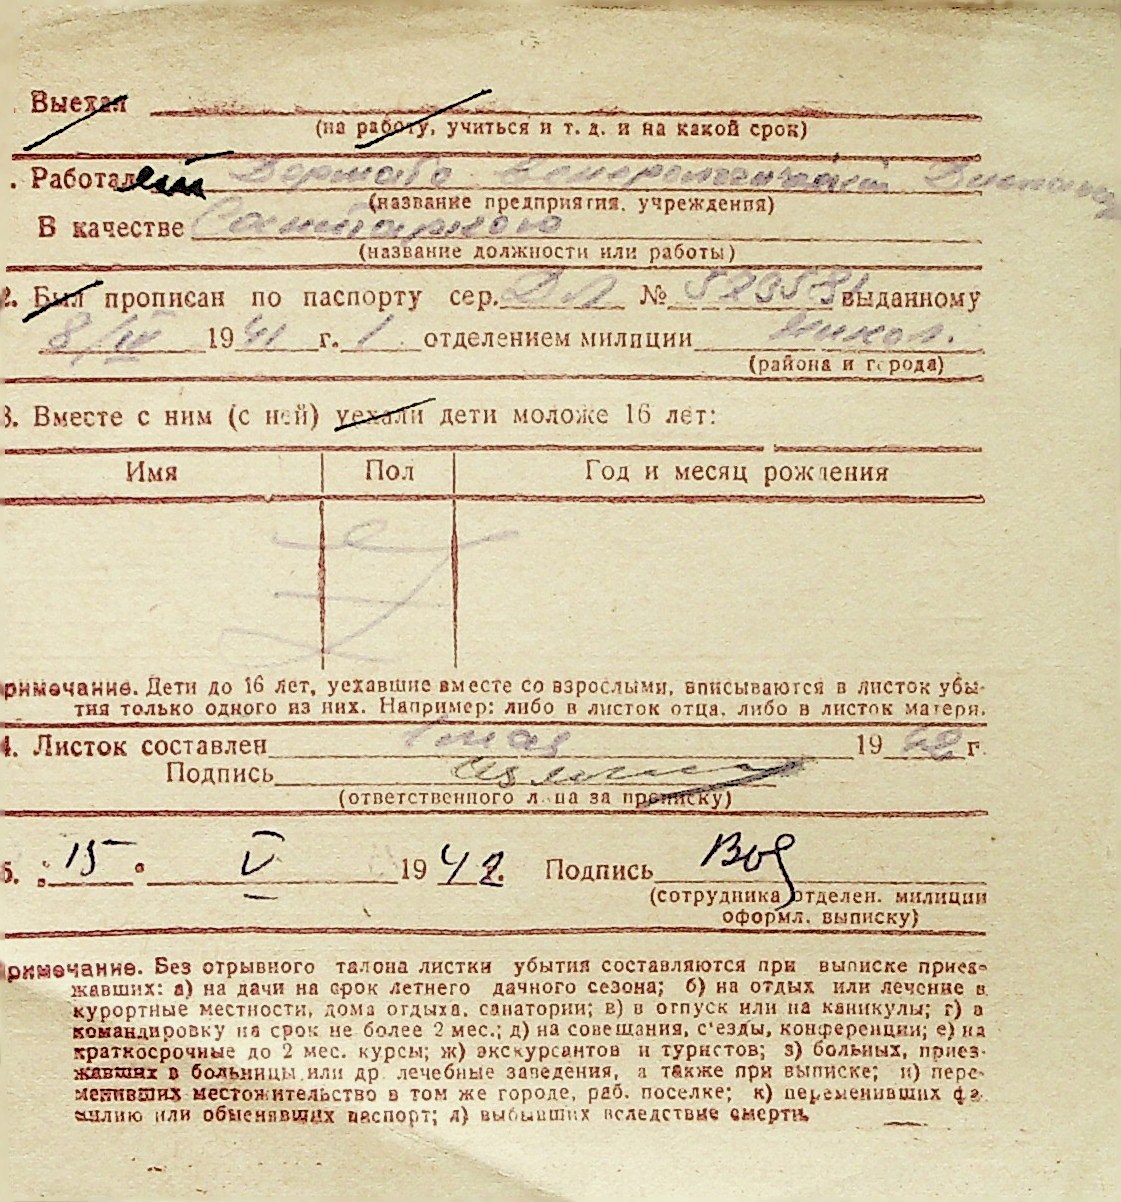 Выехал
(на работу, учиться и т. д. и на какой срок)
. Работает Дермато Венерологический Диспанс
(название предприятия, учреждения)
В качестве Санитаркою
(название должности или работы)
2. Был прописан по паспорту сер. ДЛ № 529581 выданному
8/IV 1941 г. 1 отделением милиции Никол.
(района и города)
3. Вместе с ним (с ней) уехали дети моложе 16 лет:
Имя Пол Год и месяц рождения
римечание. Дети до 16 лет, уехавшие вместе со взрослыми, вписываются в листок убы-
тия только одного из них. Например: либо в листок отца, либо в листок матери.
4. Листок составлен 1 мая 1942 г.
Подпись
(ответственного лица за прописку)
5. "15" V 1942. Подпись
(сотрудника отделен. милиции
оформл. выписку)
римечание. Без отрывного талона листки убытия составляются при выписке приез-
жавших: а) на дачи на срок летнего дачного сезона; б) на отдых или лечение в
курортные местности, дома отдыха, санатории; в) в отпуск или на каникулы; г) в
командировку на срок не более 2 мес.; д) на совещания, с'езды, конференции; е) на
краткосрочные до 2 мес. курсы; ж) экскурсантов и туристов; з) больных, приез-
жавших в больницы или др лечебные заведения, а также при выписке; и) пере-
менивших местожительство в том же городе, раб. поселке; к) переменивших фа-
милию или обменявших паспорт; л) выбывших вследствие смерти.